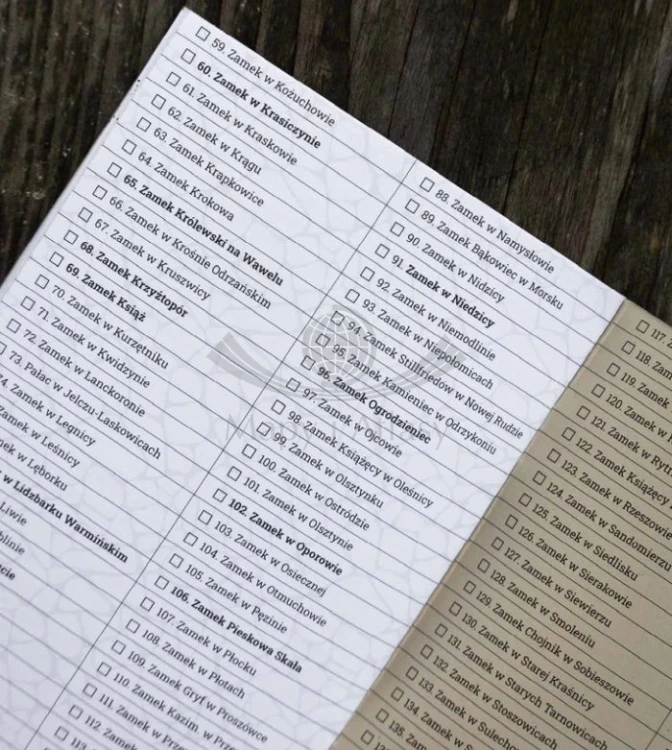 59. Zamek w Kożuchowie
60. Zamek w Krasiczynie
61. Zamek w Kraskowie
62. Zamek w Krągu
63. Zamek Krapkowice
64. Zamek Krokowa
65. Zamek Królewski na Wawelu
66. Zamek w Krośnie Odrzańskim
67. Zamek w Kruszwicy
68. Zamek Krzyżtopór
69. Zamek Książ
70. Zamek w Kurzętniku
71. Zamek w Kwidzynie
72. Zamek w Lanckoronie
73. Pałac w Jelczu-Laskowicach
Zamek w Legnicy
w Leśnicy
w Lęborku
w Lidzbarku Warmińskim
Liwie
88. Zamek w Namysłowie
89. Zamek Bąkowiec w Morsku
90. Zamek w Nidzicy
91. Zamek w Niedzicy
92. Zamek w Niemodlinie
93. Zamek w Niepołomicach
94. Zamek Stillfriedów w Nowej Rudzie
95. Zamek Kamieniec w Odrzykoniu
96. Zamek Ogrodzieniec
97. Zamek w Ojcowie
98. Zamek Książęcy w Oleśnicy
99. Zamek w Olsztynku
100. Zamek w Ostródzie
101. Zamek w Olsztynie
102. Zamek w Oporowie
103. Zamek w Osiecznej
104. Zamek w Otmuchowie
105. Zamek w Pęzinie
106. Zamek Pieskowa Skała
107. Zamek w Płocku
108. Zamek w Płotach
109. Zamek Gryf w Proszówce
110. Zamek Kazim. w
111. Zamek w
112. Zamek
113.
117.
118.
119. Zamek
120. Zamek w
121. Zamek w
122. Zamek
123. Zamek w Rzeszowie
124. Zamek w Sandomierzu
125. Zamek w Siedlisku
126. Zamek w Sierakowie
127. Zamek w Siewierzu
128. Zamek w Smoleniu
129. Zamek Chojnik w Sobieszowie
130. Zamek w Starej Kraśnicy
131. Zamek w Starych Tarnowicach
132. Zamek w Stoszowicach
133. Zamek w
134. Zamek w
135.
Mapy i Atlasy